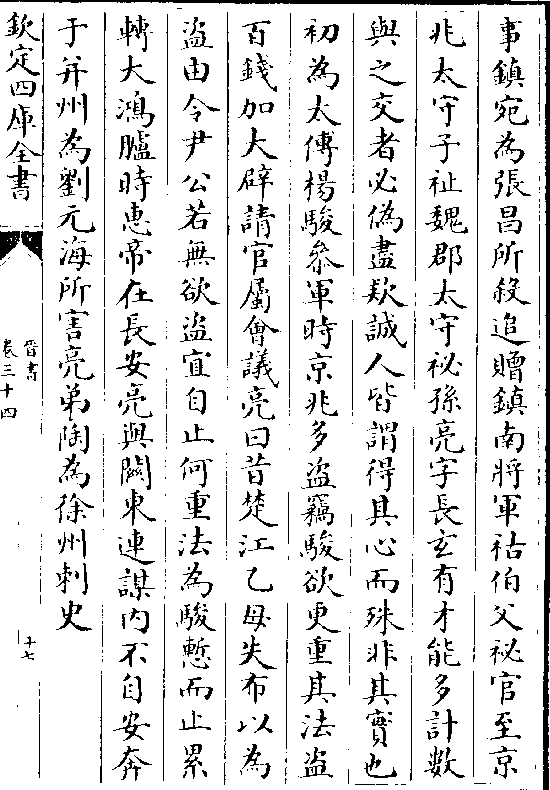 事鎮宛為張昌所殺追贈鎮南將軍祜伯父祕官至京
兆太守子祉魏郡太守祕孫亮字長玄有才能多計數
與之交者必偽盡欵誠人皆謂得其心而殊非其實也
初為太傅楊駿叅軍時京兆多盗竊駿欲更重其法盗
百錢加大辟請官屬會議亮曰昔楚江乙母失布以為
盗由令尹公若無欲盗宜自止何重法為駿慙而止累
轉大鴻臚時惠帝在長安亮與關東連謀内不自安奔
于并州為劉元海所害亮弟陶為徐州刺史
欽定四庫全書
晉書
卷三十四
十七